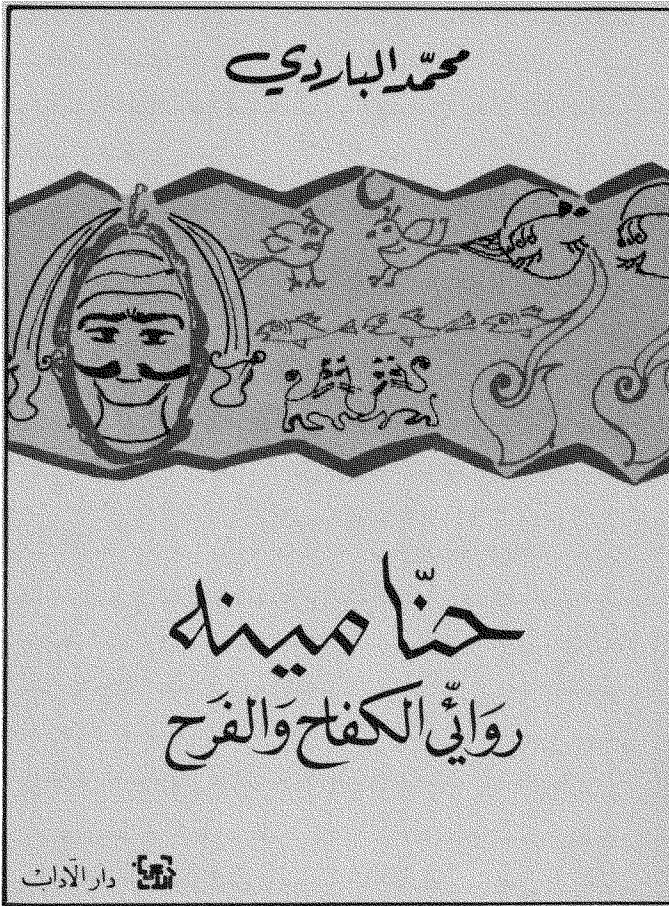 محمّد الباردي
حنّا مينه
روَائيّ الكفاح وَالفَرَح
دار الآداب